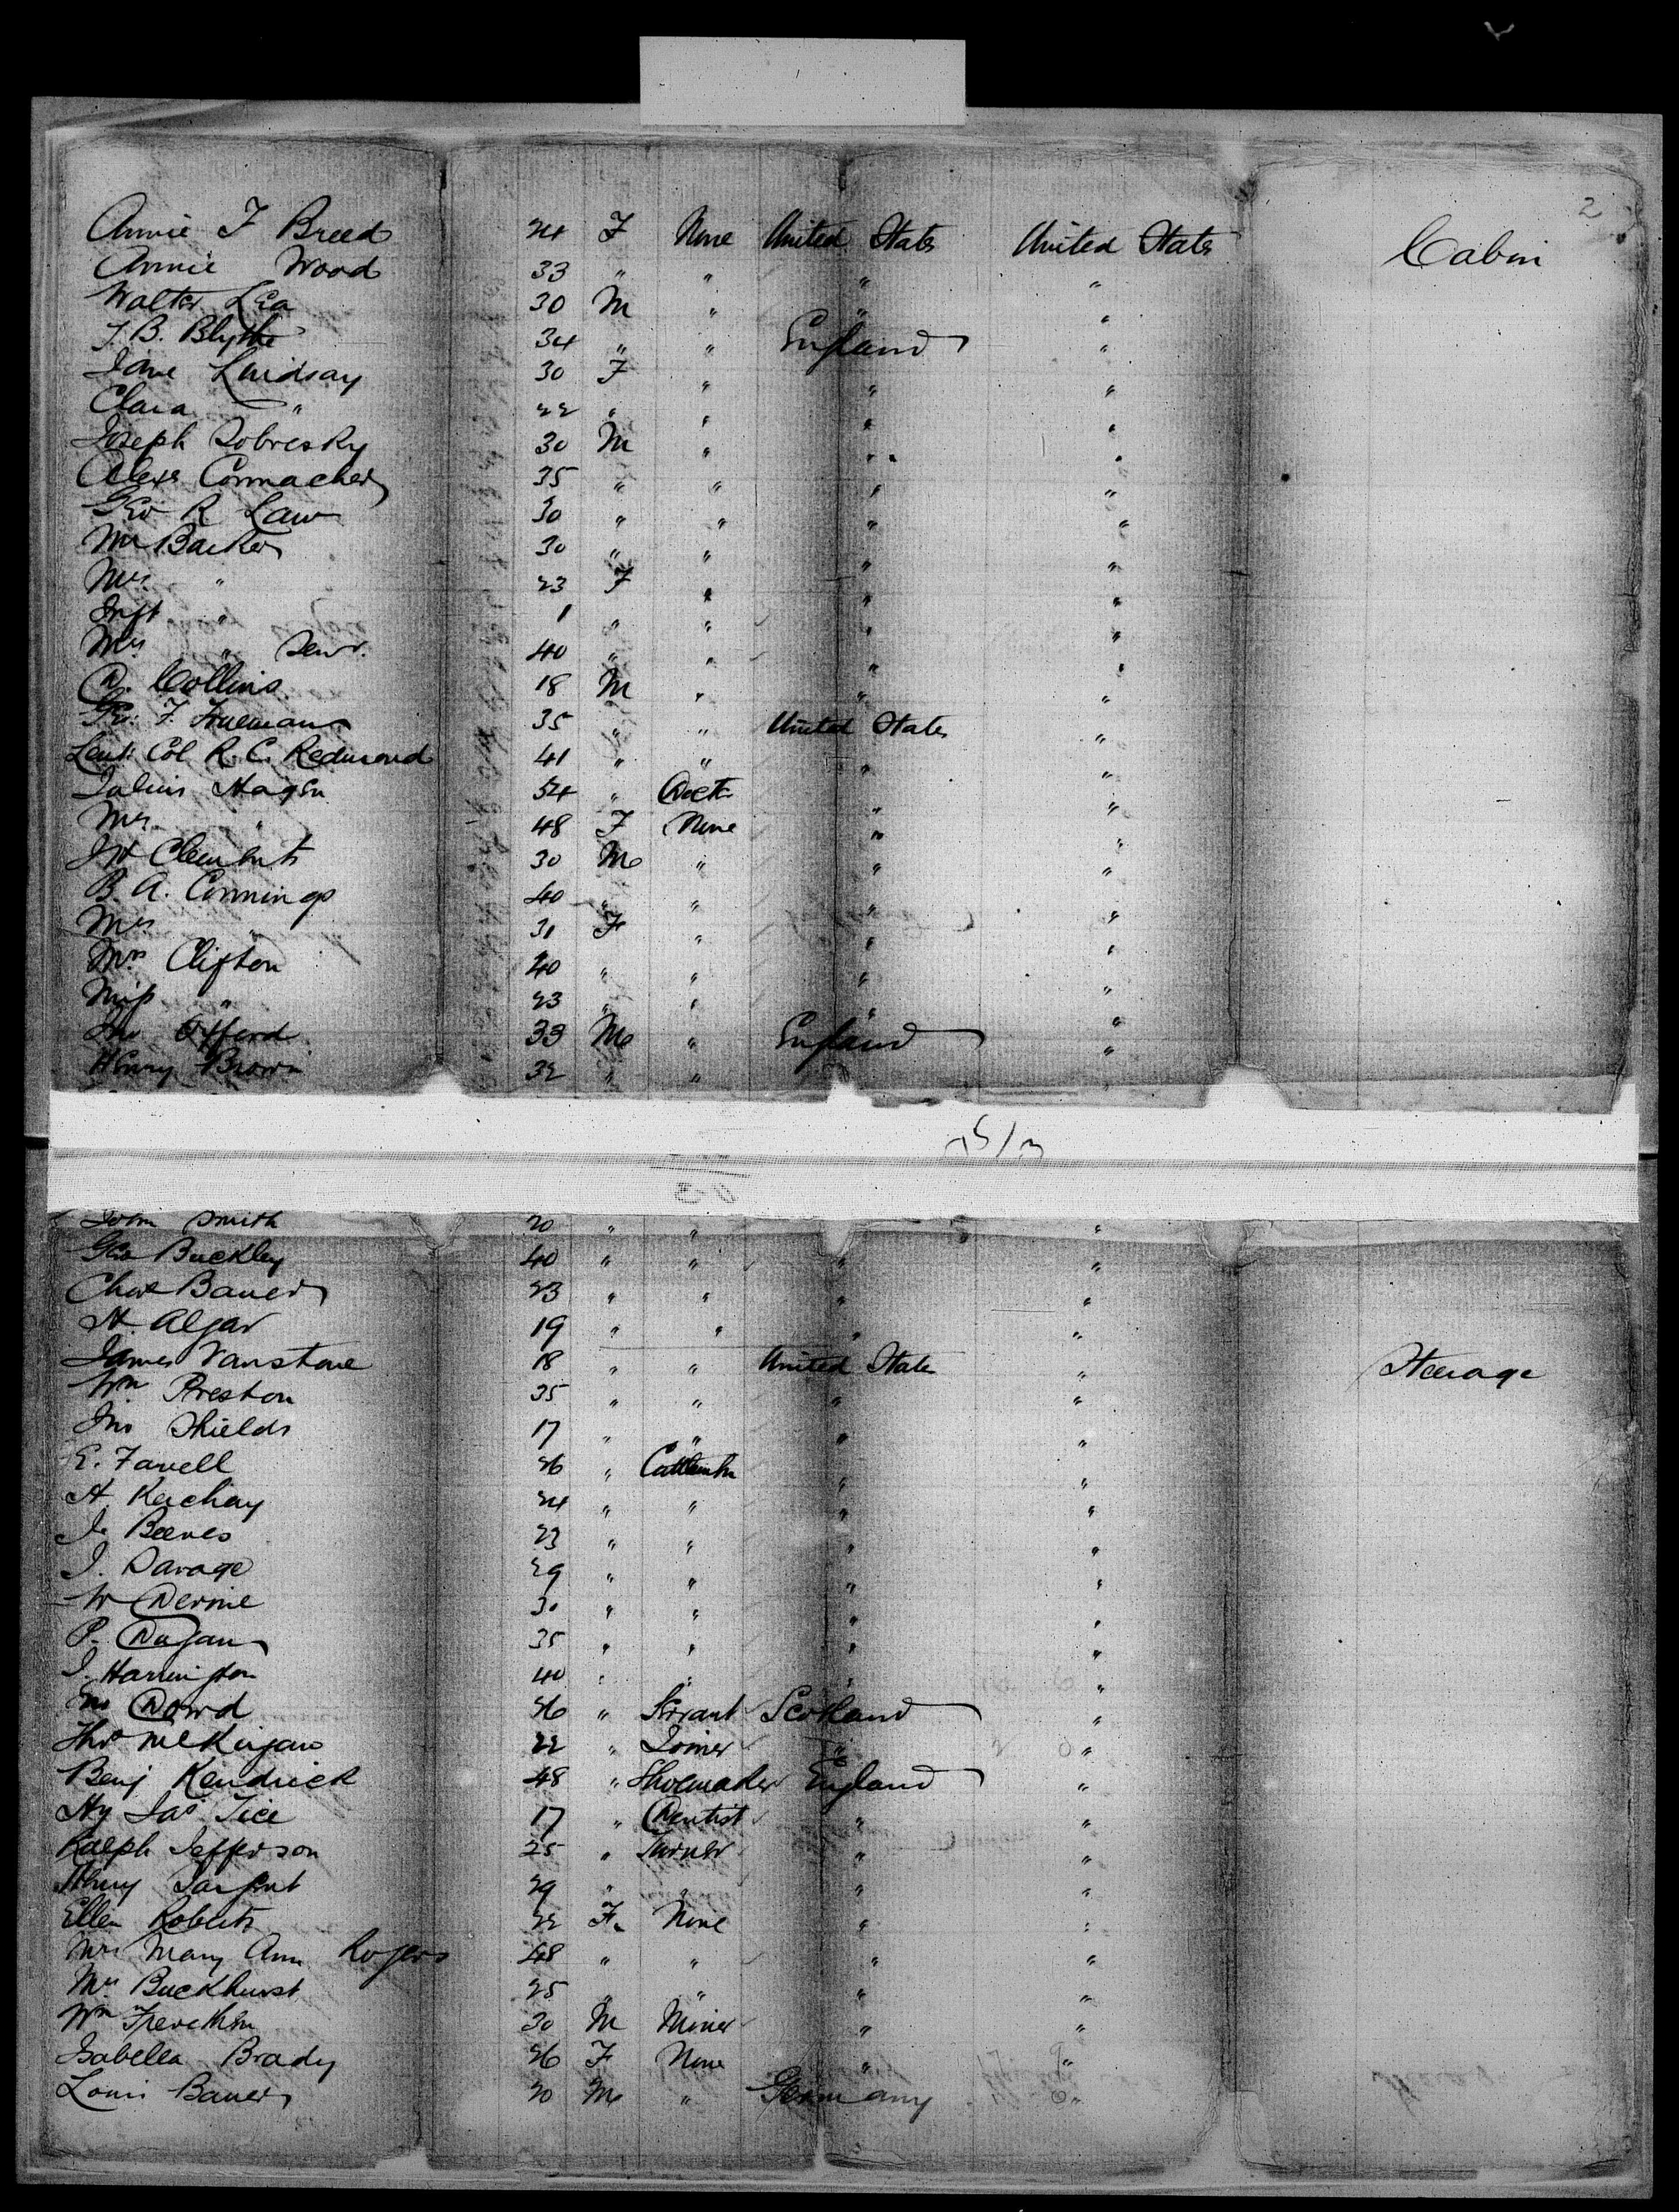 2
Annie F Breed 24 F None United States United States Cabin
Annie Wood 33 " " " "
Walter Lea 30 M " " "
J. B. Blythe 34 " " England "
Jane Lindsay 30 F " " "
Clara " 22 " " " "
Joseph Sobresky 30 M " " "
Alexr Conmacher 35 " " " "
Geo R Law 30 " " " "
Mr Barker 30 " " " "
Mrs " 23 F " " "
Inft " 1 " " " "
Mrs " Serv. 40 " " " "
D. Collins 18 M " " "
F. Freeman 35 " " United States "
Lieut. Col R. C. Redmond 41 " " " "
Julius Hagen 54 " Doctr " "
Mrs " 48 F None " "
Clements 30 M " " "
B. A. Connings 40 " " " "
Mrs " 31 F " " "
Mrs Clifton 40 " " " "
Miss " 23 " " " "
Jno Offord 33 M " England "
Henry Brown 32 " "
John Smith 20 " " "
Geo Buckley 40 " " " "
Chas Bauer 23 " " " "
H. Algar 19 " " " "
James Vanstone 18 " " United States " Steerage
Wm Preston 35 " " " "
Jno Shields 17 " " " "
E. Farvell 26 " Cattlemn " "
H. Kachay 24 " " " "
J. Beeves 23 " " " "
J. Savage 29 " " " "
W Devine 30 " " " "
P. Dugan 35 " " " "
J. Harrington 40 " " " "
Dowd 26 " Servant Scotland "
Thos McKugan 22 " Joiner " "
Benj Kendrick 48 " Shoemaker England "
Hy Jas Tice 17 " Dentist " "
Ralph Jefferson 25 " Turner " "
Henry Sargent 29 " " " "
Ellen Roberts 22 F. None " "
Mrs Mary Ann Rogers 48 " " " "
Mrs Buckhurst 25 " " " "
Wm 30 M Miner " "
Isabella Brady 26 F None " "
Louis Bauer 20 M " Germany "